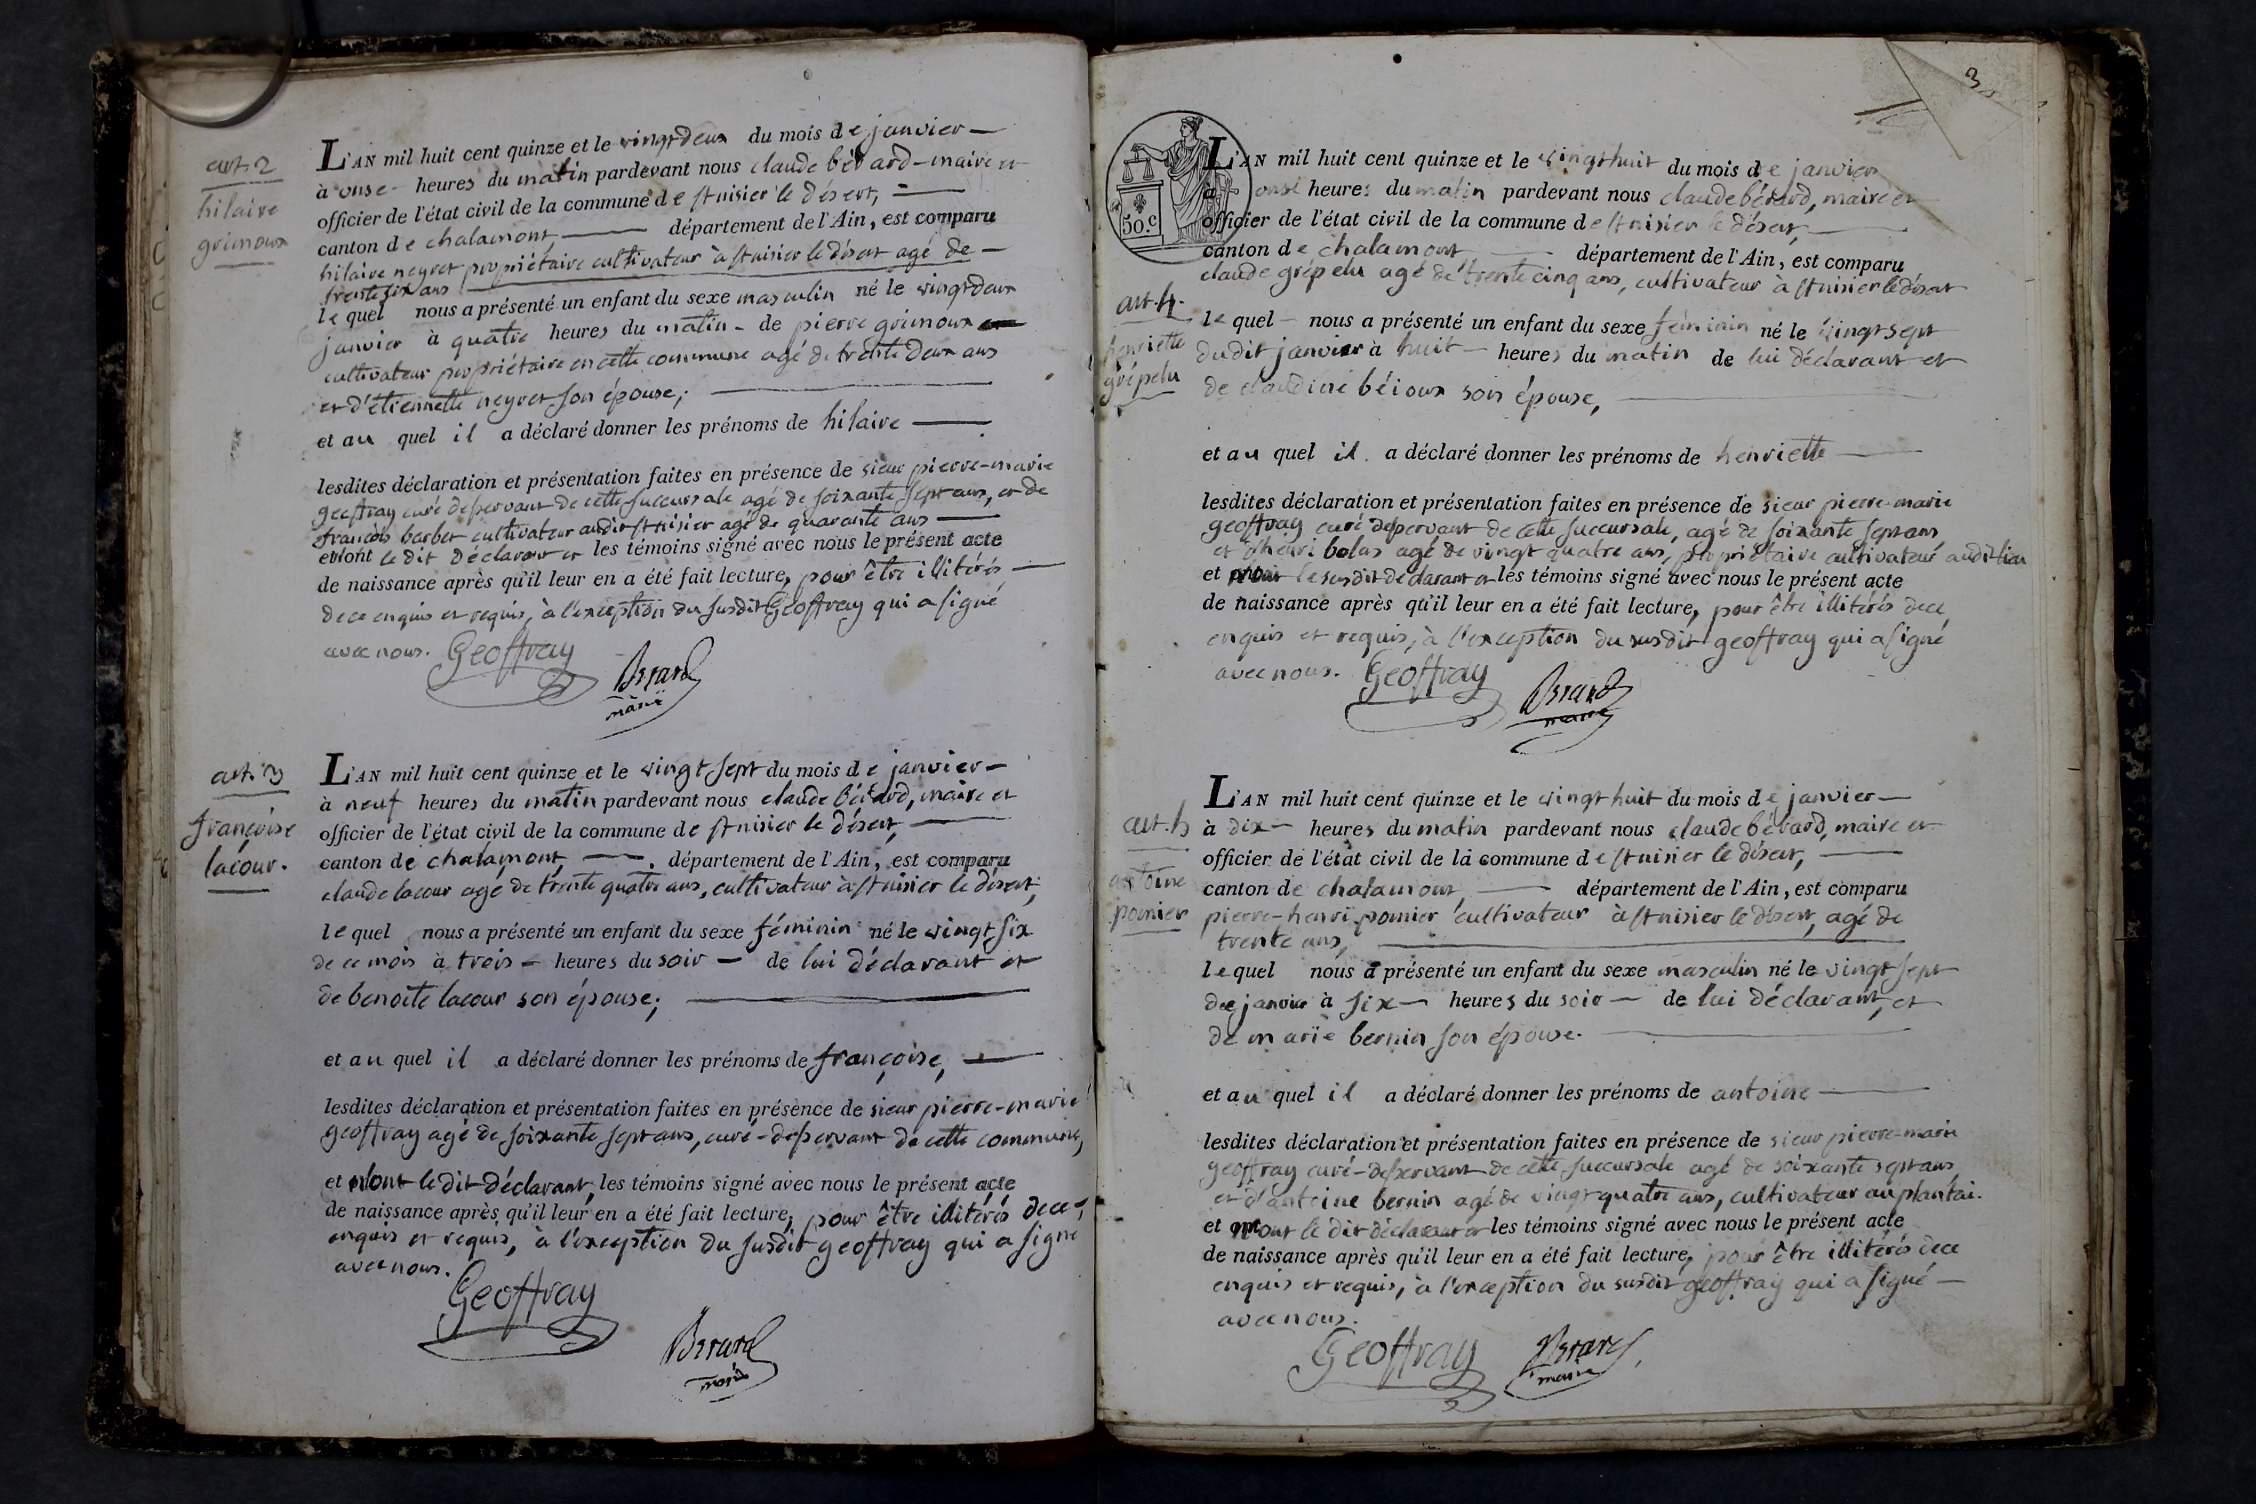 art. 2
hilaire
grimoux
L'AN mil huit cent quinze et le vingt deux du mois de janvier —
à onse - heures du matin pardevant nous claude bérard - maire et
officier de l'état civil de la commune de st nisier le désert, —
canton de chalamont, — département de l'Ain, est comparu
hilaire neyret propriétaire cultivateur à st nisier le désert agé de —
trente six ans
le quel nous a présenté un enfant du sexe masculin né le vingt deux
janvier à quatre heures du matin - de pierre grimoux
cultivateur propriétaire en cette commune agé de trente deux ans
et d'étiennette neyret son épouse; —
et au quel il a déclaré donner les prénoms de hilaire —
lesdites déclaration et présentation faites en présence de sieur pierre-marie
geoffray curé desservant de cette succursale agé de soixante sept ans, et de
françois barbet cultivateur audit st nisier agé de quarante ans —
et n'ont le dit déclarant et les témoins signé avec nous le présent acte
de naissance après qu'il leur en a été fait lecture, pour être illitérés —
de ce enquis et requis, à l'exception du susdit Geoffray qui a signé
avec nous. Geoffray Berard
maire
art. 3
françoise
lacour.
L'AN mil huit cent quinze et le vingt sept du mois de janvier —
à neuf heures du matin pardevant nous claude bérard, maire et
officier de l'état civil de la commune de st nisier le désert, —
canton de chalamont, —. département de l'Ain, est comparu
claude lacour agé de trente quatre ans, cultivateur à st nisier le désert;
le quel nous a présenté un enfant du sexe féminin né le vingt six
de ce mois à trois — heures du soir — de lui déclarant et
de benoîte lacour son épouse; —
et au quel il a déclaré donner les prénoms de françoise, —
lesdites déclaration et présentation faites en présence de sieur pierre-marie
geoffray agé de soixante sept ans, curé-desservant de cette commune,
et n'ont le dit déclarant, les témoins signé avec nous le présent acte
de naissance après qu'il leur en a été fait lecture, pour être illitérés de ce,
enquis et requis, à l'exception du susdit geoffray qui a signé
avec nous.
Geoffray
Berard
maire
3
50.c
art. 4.
henriette
grépelu
L'AN mil huit cent quinze et le vingt huit du mois de janvier
à onse heures du matin pardevant nous claude bérard, maire et
officier de l'état civil de la commune de st nisier le désert, —
canton de chalamont — département de l'Ain, est comparu
claude grépelu agé de trente cinq ans, cultivateur à st nisier le désert
le quel - nous a présenté un enfant du sexe féminin né le vingt sept
dudit janvier à huit — heures du matin de lui déclarant et
de claudine béioux son épouse, —
et au quel il a déclaré donner les prénoms de henriette —
lesdites déclaration et présentation faites en présence de sieur pierre-marie
geoffray curé desservant de cette succursale, agé de soixante sept ans
et d'henri bolas agé de vingt quatre ans, propriétaire cultivateur audit lieu
et n'ont le susdit déclarant et les témoins signé avec nous le présent acte
de naissance après qu'il leur en a été fait lecture, pour être illitérés de ce,
enquis et requis, à l'exception du susdit geoffray qui a signé
avec nous. Geoffray Berard
maire
art. 5
antoine
pomier
L'AN mil huit cent quinze et le vingt huit du mois de janvier —
à dix — heures du matin pardevant nous claude bérard, maire et
officier de l'état civil de la commune de st nisier le désert, —
canton de chalamont, — département de l'Ain, est comparu
pierre-henri pomier cultivateur à st nisier le désert, agé de
trente ans, —
le quel nous a présenté un enfant du sexe masculin né le vingt sept
de janvier à six — heures du soir — de lui déclarant, et
de marie bernin son épouse. —
et au quel il a déclaré donner les prénoms de antoine —
lesdites déclaration et présentation faites en présence de sieur pierre-marie
geoffray curé-desservant de cette succursale agé de soixante sept ans
et d'antoine bernin agé de vingt quatre ans, cultivateur au plantai.
et n'ont le dit déclarant et les témoins signé avec nous le présent acte
de naissance après qu'il leur en a été fait lecture, pour être illitérés de ce
enquis et requis, à l'exception du susdit geoffray qui a signé —
avec nous.
Geoffray Berard
maire